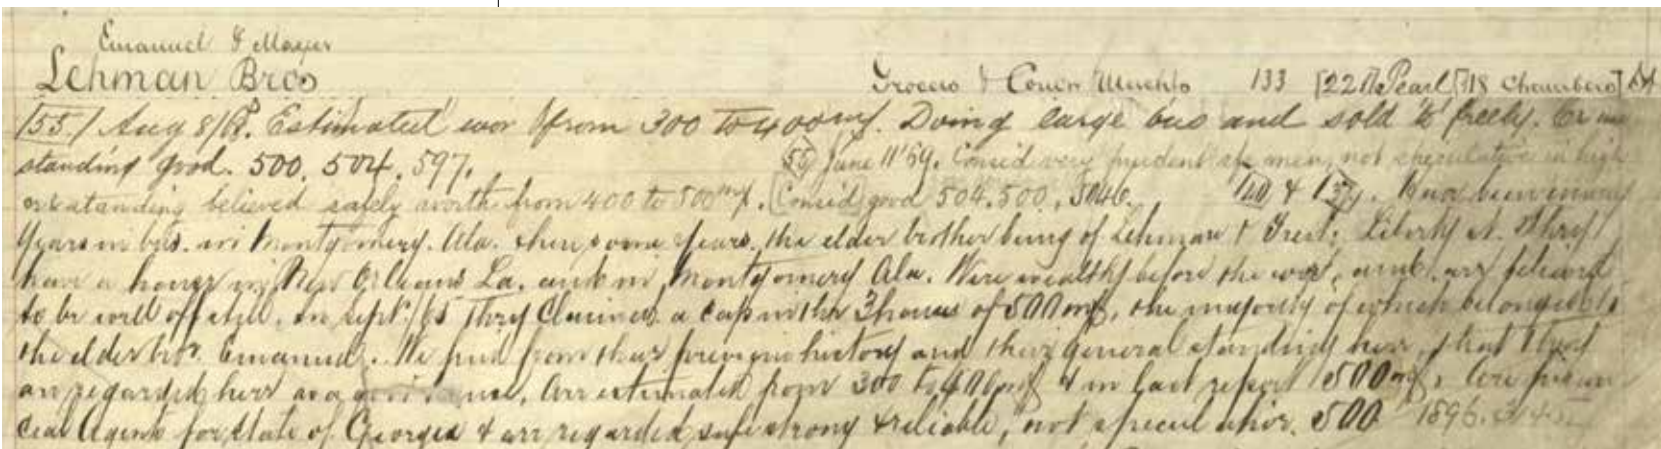 Emanuel & Mayer
Lehman Bros Grocers & Comn Merchts 133 [227 Pearl [78 Chambers]
[55] Aug 8/68. Estimated wor from 300 to 400m$. Doing large bus and sold to freely. Cr
standing good. 500. 504. 597. 55 June 11'69. Consid very prudent safe men, not speculative in high
standing believed safely worth from 400 to 500m$. Consid good 504. 500. 5046. 140 & 137. Have been many
years in bus. in Montgomery. Ala. then some years, the elder brother being of Lehman & Liberty st. They
have a house in New Orleans La. and in Montgomery Ala. Were wealthy before the war, and are
to be well off still. In Sept/65 they claimed a cap in the 3 houses of 500m$, the majority of which belonged to
the elder bro. Emanuel. We find from their previous history and their general standing here, that they
are regarded here as a good house, are estimated from 300 to 400m$ & in last report 500m$. Are
cial Agents for State of Georgia & are regarded safe strong & reliable, not 500 1896.